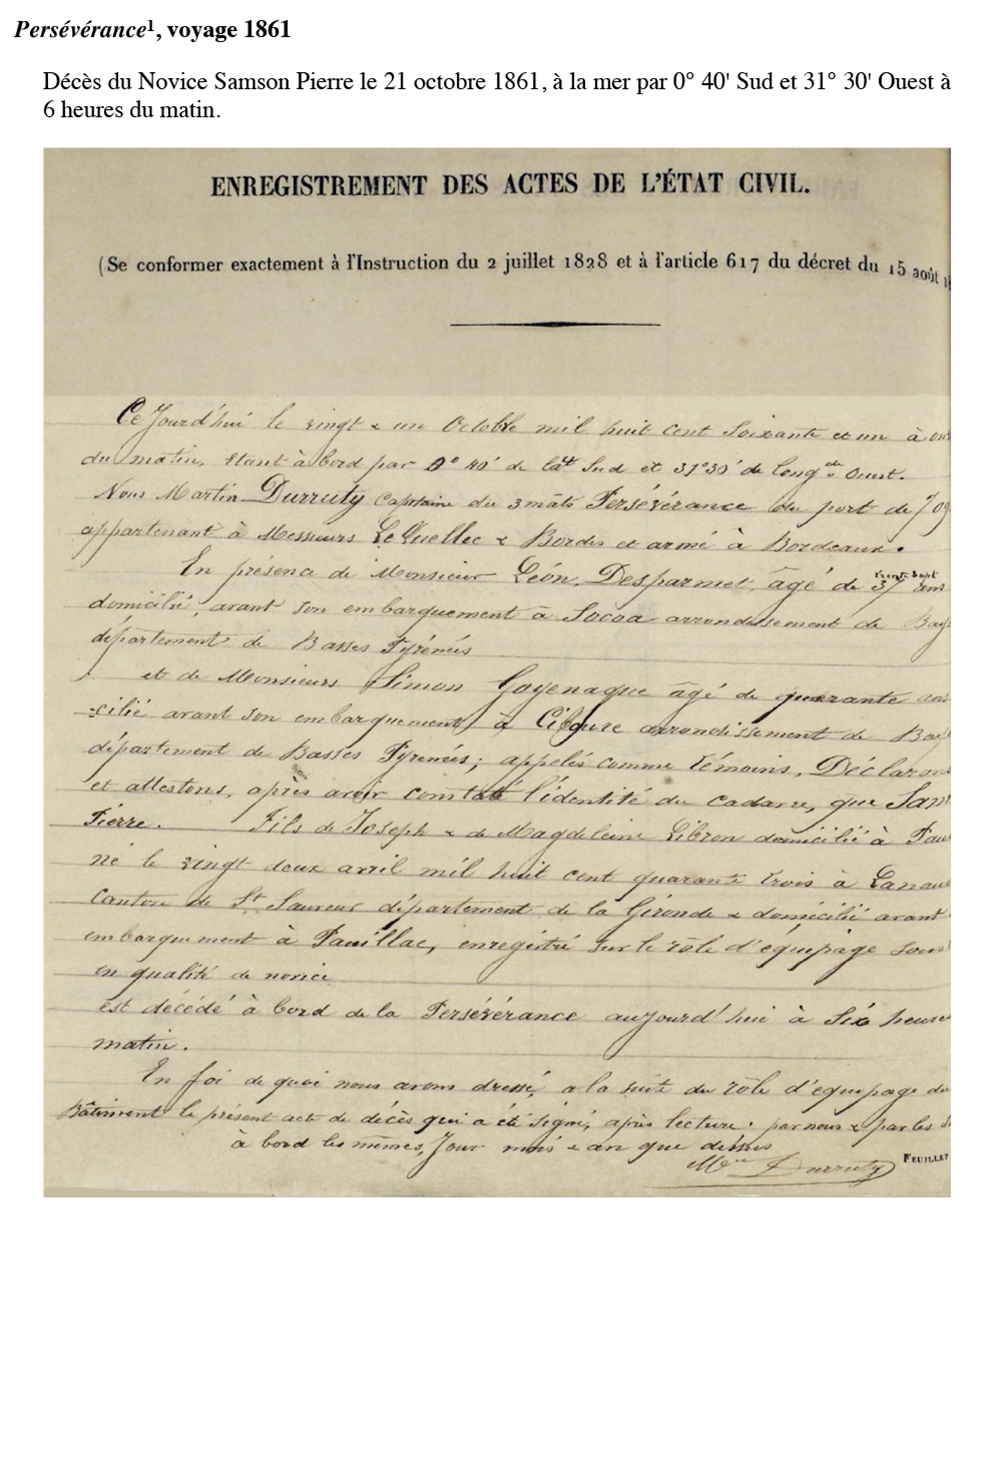 Persévérance¹, voyage 1861
Décès du Novice Samson Pierre le 21 octobre 1861, à la mer par 0° 40' Sud et 31° 30' Ouest à
6 heures du matin.
ENREGISTREMENT DES ACTES DE L'ÉTAT CIVIL.
(Se conformer exactement à l'Instruction du 2 juillet 1828 et à l'article 617 du décret du 15 août
Ce Jourd'hui le vingt & un Octobre mil huit cent Soixante et un à
du matin, étant à bord par 0° 40' de latt Sud et 31°30' de longde Ouest.
Nous Martin Durruty Capitaine du 3 mâts Persévérance du port de 709
appartenant à Messieurs Le Quellec & Bordes et armé à Bordeaux.
En présence de Monsieur Léon Desparmet âgé de 37 trente Sept ans
domicilié, avant son embarquement à Socoa arrondissement de Bay
département de Basses Pyrénées
et de Monsieurs Simon Goyenague âgé de quarante ans
-cilié avant son embarquement à Ciboure arrondissement de Bay
département de Basses Pyrénées; appelés comme témoins, Déclarons
et attestons, après avoir constaté l'identité du cadavre, que Sam
Pierre. Fils de Joseph & de Magdeleine Libron domicilié à Pau
né le vingt deux avril mil huit cent quarante trois à
Canton de St Sauveur département de la Gironde & domicilié avant
embarquement à Pauillac, enregistré sur le rôle d'équipage sous
en qualité de novice
est décédé à bord de la Persévérance aujourd'hui à Six heure
matin.
En foi de quoi nous avons dressé, a la suite du rôle d'équipage du
Bâtiment le présent acte de décès qui a été signé, après lecture, par nous & par les
à bord les mêmes, Jour mois & an que dessus
Durruty
FEUILLET